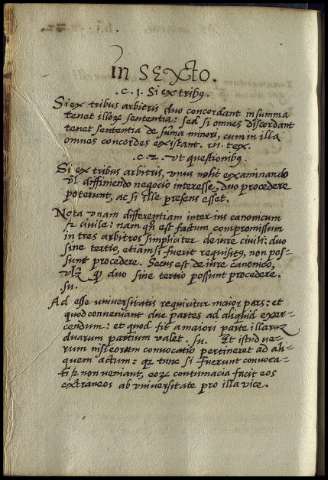 IN SEXTO.
.c. 1. Si ex tribq.
Si ex tribus arbitris duo concordant in summa
tenet illorum sententia: sed si omnes discordant
tenet sententia de summa minori, cum in illa
omnes concordes existant. in tex.
.c. 2. ut questionibq.
Si ex tribus arbitris, unus nolit examinando
vel diffiniendo negocio interesse. duo procedere
poterunt, ac si ille presens esset.
Nota unam differentiam inter ius canonicum
et civile: nam quando est factum compromissum
in tres arbitros simpliciter de iure civili: duo
sine tertio, etiam si fuerit requisitus, non pos-
sunt procedere. Secus est de iure canonico,
duo sine tertio possunt procedere.
su.
Ad esse universitatis requiritur maior pars: et
quod conveniant due partes ad aliquid exer-
cendum: et quod fit a maiori parte illarum
duarum partium valet. su. Et istud ve-
rum nisi eorum convocatio pertineret ad ali-
quem actum: quia tunc si fuerint convoca-
ti et non veniant, eorum contumacia facit eos
extraneos ab universitate pro illa vice.